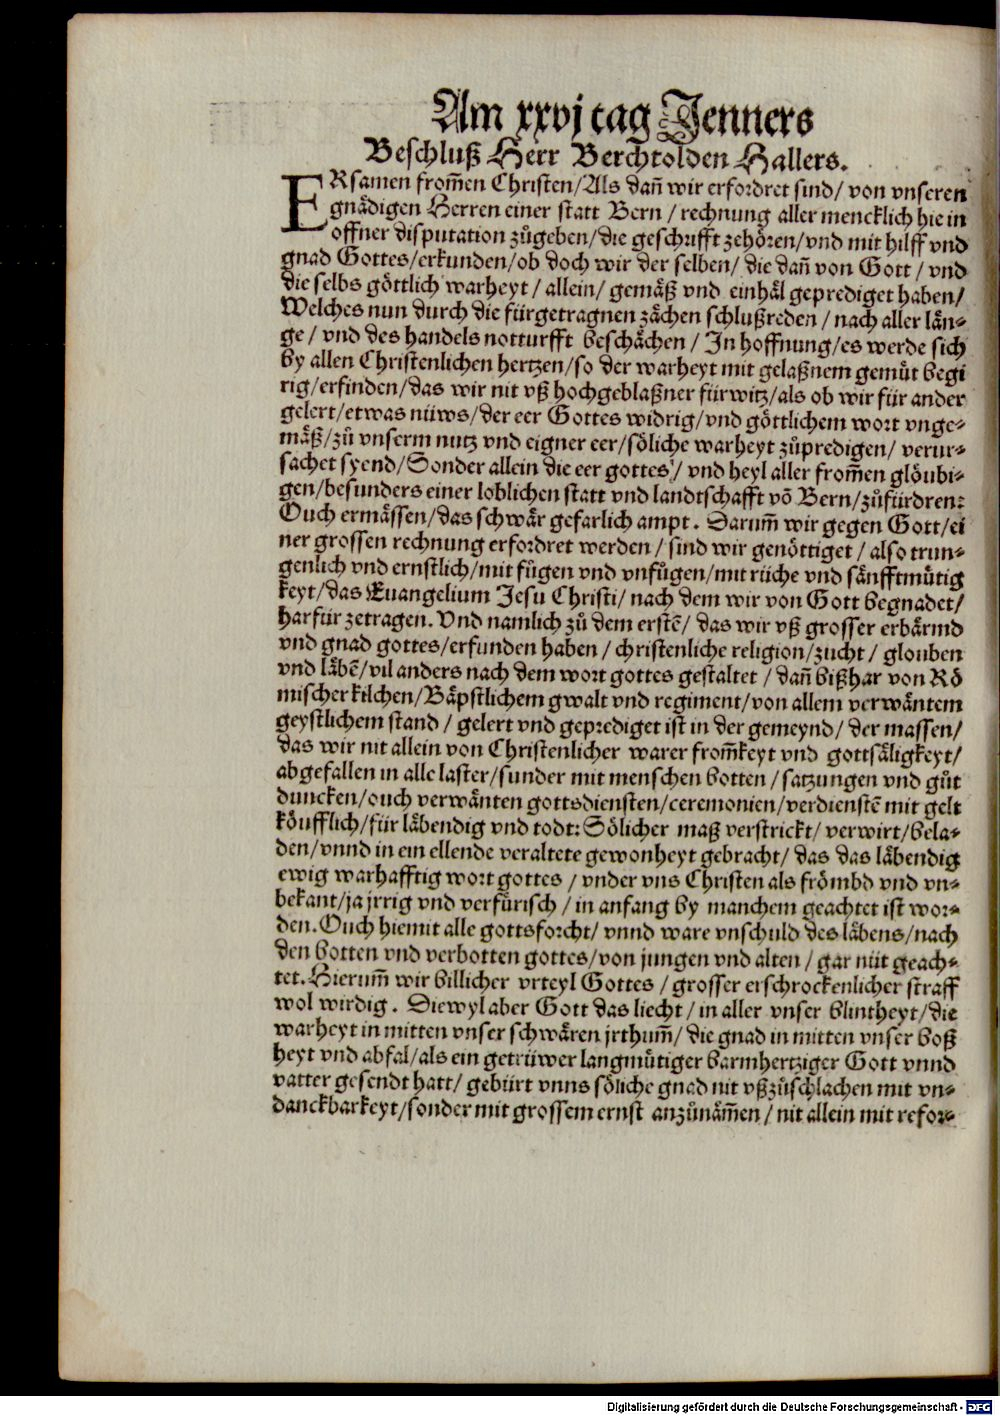 Am xxvj tag Jenners
Beschluß Herr Berchtolden Hallers.
ERsamen from̃en Christen/Als dañ wir erfordret sind/ von vnseren
gnädigen Herren einer statt Bern / rechnung aller mencklich hie in
offner disputation zůgeben/die geschrifft zehören/vnd mit hilff vnd
gnad Gottes/erkunden/ob doch wir der selben/ die dañ von Gott / vnd
die selbs göttlich warheyt / allein/ gemäß vnd einhäl geprediget haben/
Welches nun durch die fürgetragnen zächen schlußreden / nach aller län-
ge / vnd des handels notturfft beschächen / In hoffnung/es werde sich
by allen Christenlichen hertzen/so der warheyt mit gelaßnem gemüt begi
rig/erfinden/das wir nit vß hochgeblaßner fürwitz/als ob wir für ander
gelert/etwas nüws/der eer Gottes widrig/vnd göttlichem wort vnge-
mäß/zů vnserm nutz vnd eigner eer/söliche warheyt zůpredigen/ verur-
sachet syend/Sonder allein die eer gottes / vnd heyl aller from̃en glöubi-
gen/besunders einer loblichen statt vnd landtschafft võ Bern/zůfürdren:
Ouch ermässen/das schwär gefarlich ampt. Darum̃ wir gegen Gott/ei
ner grossen rechnung erfordret werden / sind wir genöttiget / also trun-
genlich vnd ernstlich/mit fůgen vnd vnfůgen/mit rüche vnd sänfftmütig
keyt/das Euangelium Jesu Christi/ nach dem wir von Gott begnadet/
harfür zetragen. Vnd namlich zů dem erstẽ/ das wir vß grosser erbärmd
vnd gnad gottes/erfunden haben / christenliche religion/zucht / glouben
vnd läbẽ/vil anders nach dem wort gottes gestaltet / dañ bißhar von Rö
mischer kilchen/Bäpstlichem gwalt vnd regiment/von allem verwäntem
geystlichem stand / gelert vnd geprediget ist in der gemeynd/ der massen/
das wir nit allein von Christenlicher warer from̃keyt vnd gottsäligkeyt/
abgefallen in alle laster/sunder mit menschen botten / satzungen vnd gůt
duncken/ouch verwänten gottsdiensten/ceremonien/verdienstẽ mit gelt
köufflich/für läbendig vnd todt: Sölicher maß verstrickt/ verwirt/bela-
den/vnnd in ein ellende veraltete gewonheyt gebracht/ das das läbendig
ewig warhafftig wort gottes / vnder vns Christen als frömbd vnd vn-
bekant/ja jrrig vnd verfürisch / in anfang by manchem geachtet ist wor-
den. Ouch hiemit alle gottsforcht/ vnnd ware vnschuld des läbens/nach
den botten vnd verbotten gottes/von jungen vnd alten / gar nüt geach-
tet. Hierum̃ wir billicher vrteyl Gottes / grosser erschrockenlicher straff
wol wirdig . Diewyl aber Gott das liecht / in aller vnser blintheyt/die
warheyt in mitten vnser schwären jrthum̃/ die gnad in mitten vnser boß
heyt vnd abfal/als ein getrüwer langmütiger barmhertziger Gott vnnd
vatter gesendt hatt/ gebürt vnns söliche gnad nit vßzůschlachen mit vn-
danckbarkeyt/sonder mit grossem ernst anzůnäm̃en / nit allein mit refor-
Digitalisierung gefördert durch die Deutsche Forschungsgemeinschaft - DFG